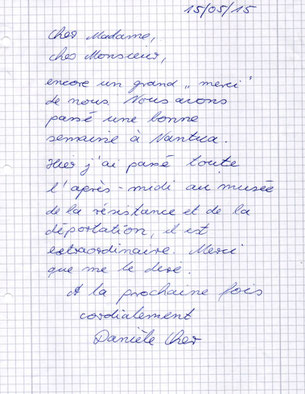 15/05/15
Cher Madame,
cher Monsieur,
encore un grand „merci"
de nous. Nous avons
passé une bonne
semaine à Nantua.
Hier j'ai passé toute
l'après-midi au musée
de la résistance et de la
déportation, il est
extraordinaire. Merci
que me le dire.
A la prochaine fois
cordialement
Danièle Cher